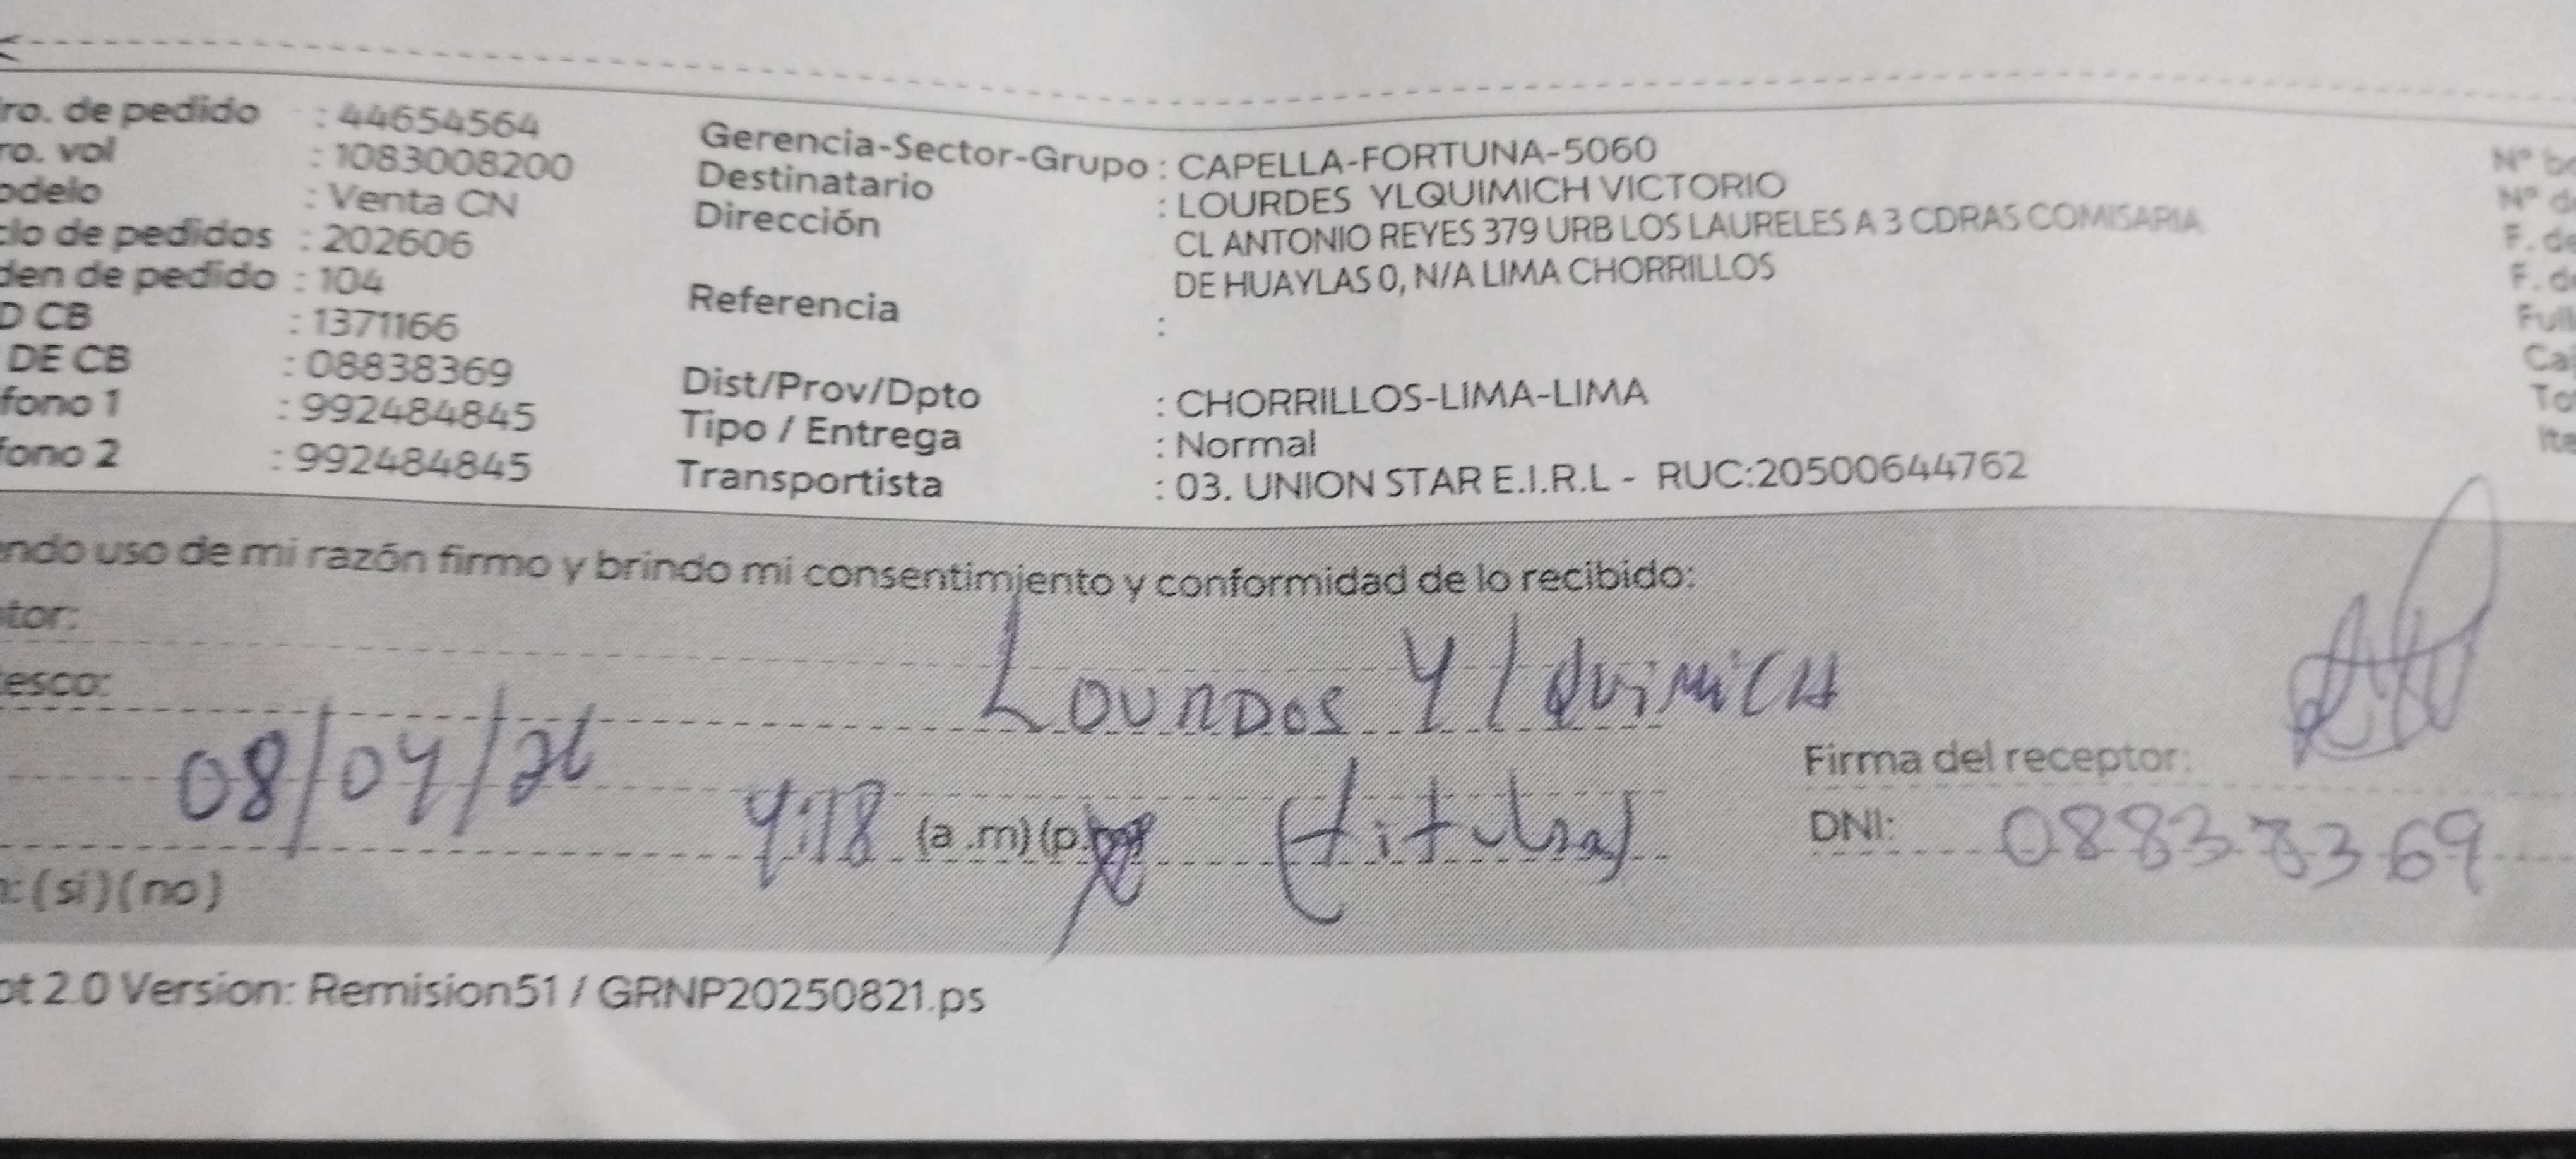 ro. de pedido : 44654564
ro. vol : 1083008200
odelo : Venta CN
clo de pedidos : 202606
den de pedido : 104
D CB : 1371166
DE CB : 08838369
fono 1 : 992484845
fono 2 : 992484845
Gerencia-Sector-Grupo : CAPELLA-FORTUNA-5060
Destinatario : LOURDES YLQUIMICH VICTORIO
Dirección CL ANTONIO REYES 379 URB LOS LAURELES A 3 CDRAS COMISARIA
DE HUAYLAS 0, N/A LIMA CHORRILLOS
Referencia :
Dist/Prov/Dpto : CHORRILLOS-LIMA-LIMA
Tipo / Entrega : Normal
Transportista : 03. UNION STAR E.I.R.L - RUC:20500644762
Nº bo
Nº de
F. de
F. de
Full
Caj
Tot
Ite
endo uso de mi razón firmo y brindo mi consentimiento y conformidad de lo recibido:
tor: Lourdes Ylquimich
tesco:
08/04/26
4:18 (a.m)(p. (titular)
Firma del receptor:
DNI: 08838369
: (si)(no)
ot 2.0 Version: Remision51 / GRNP20250821.ps